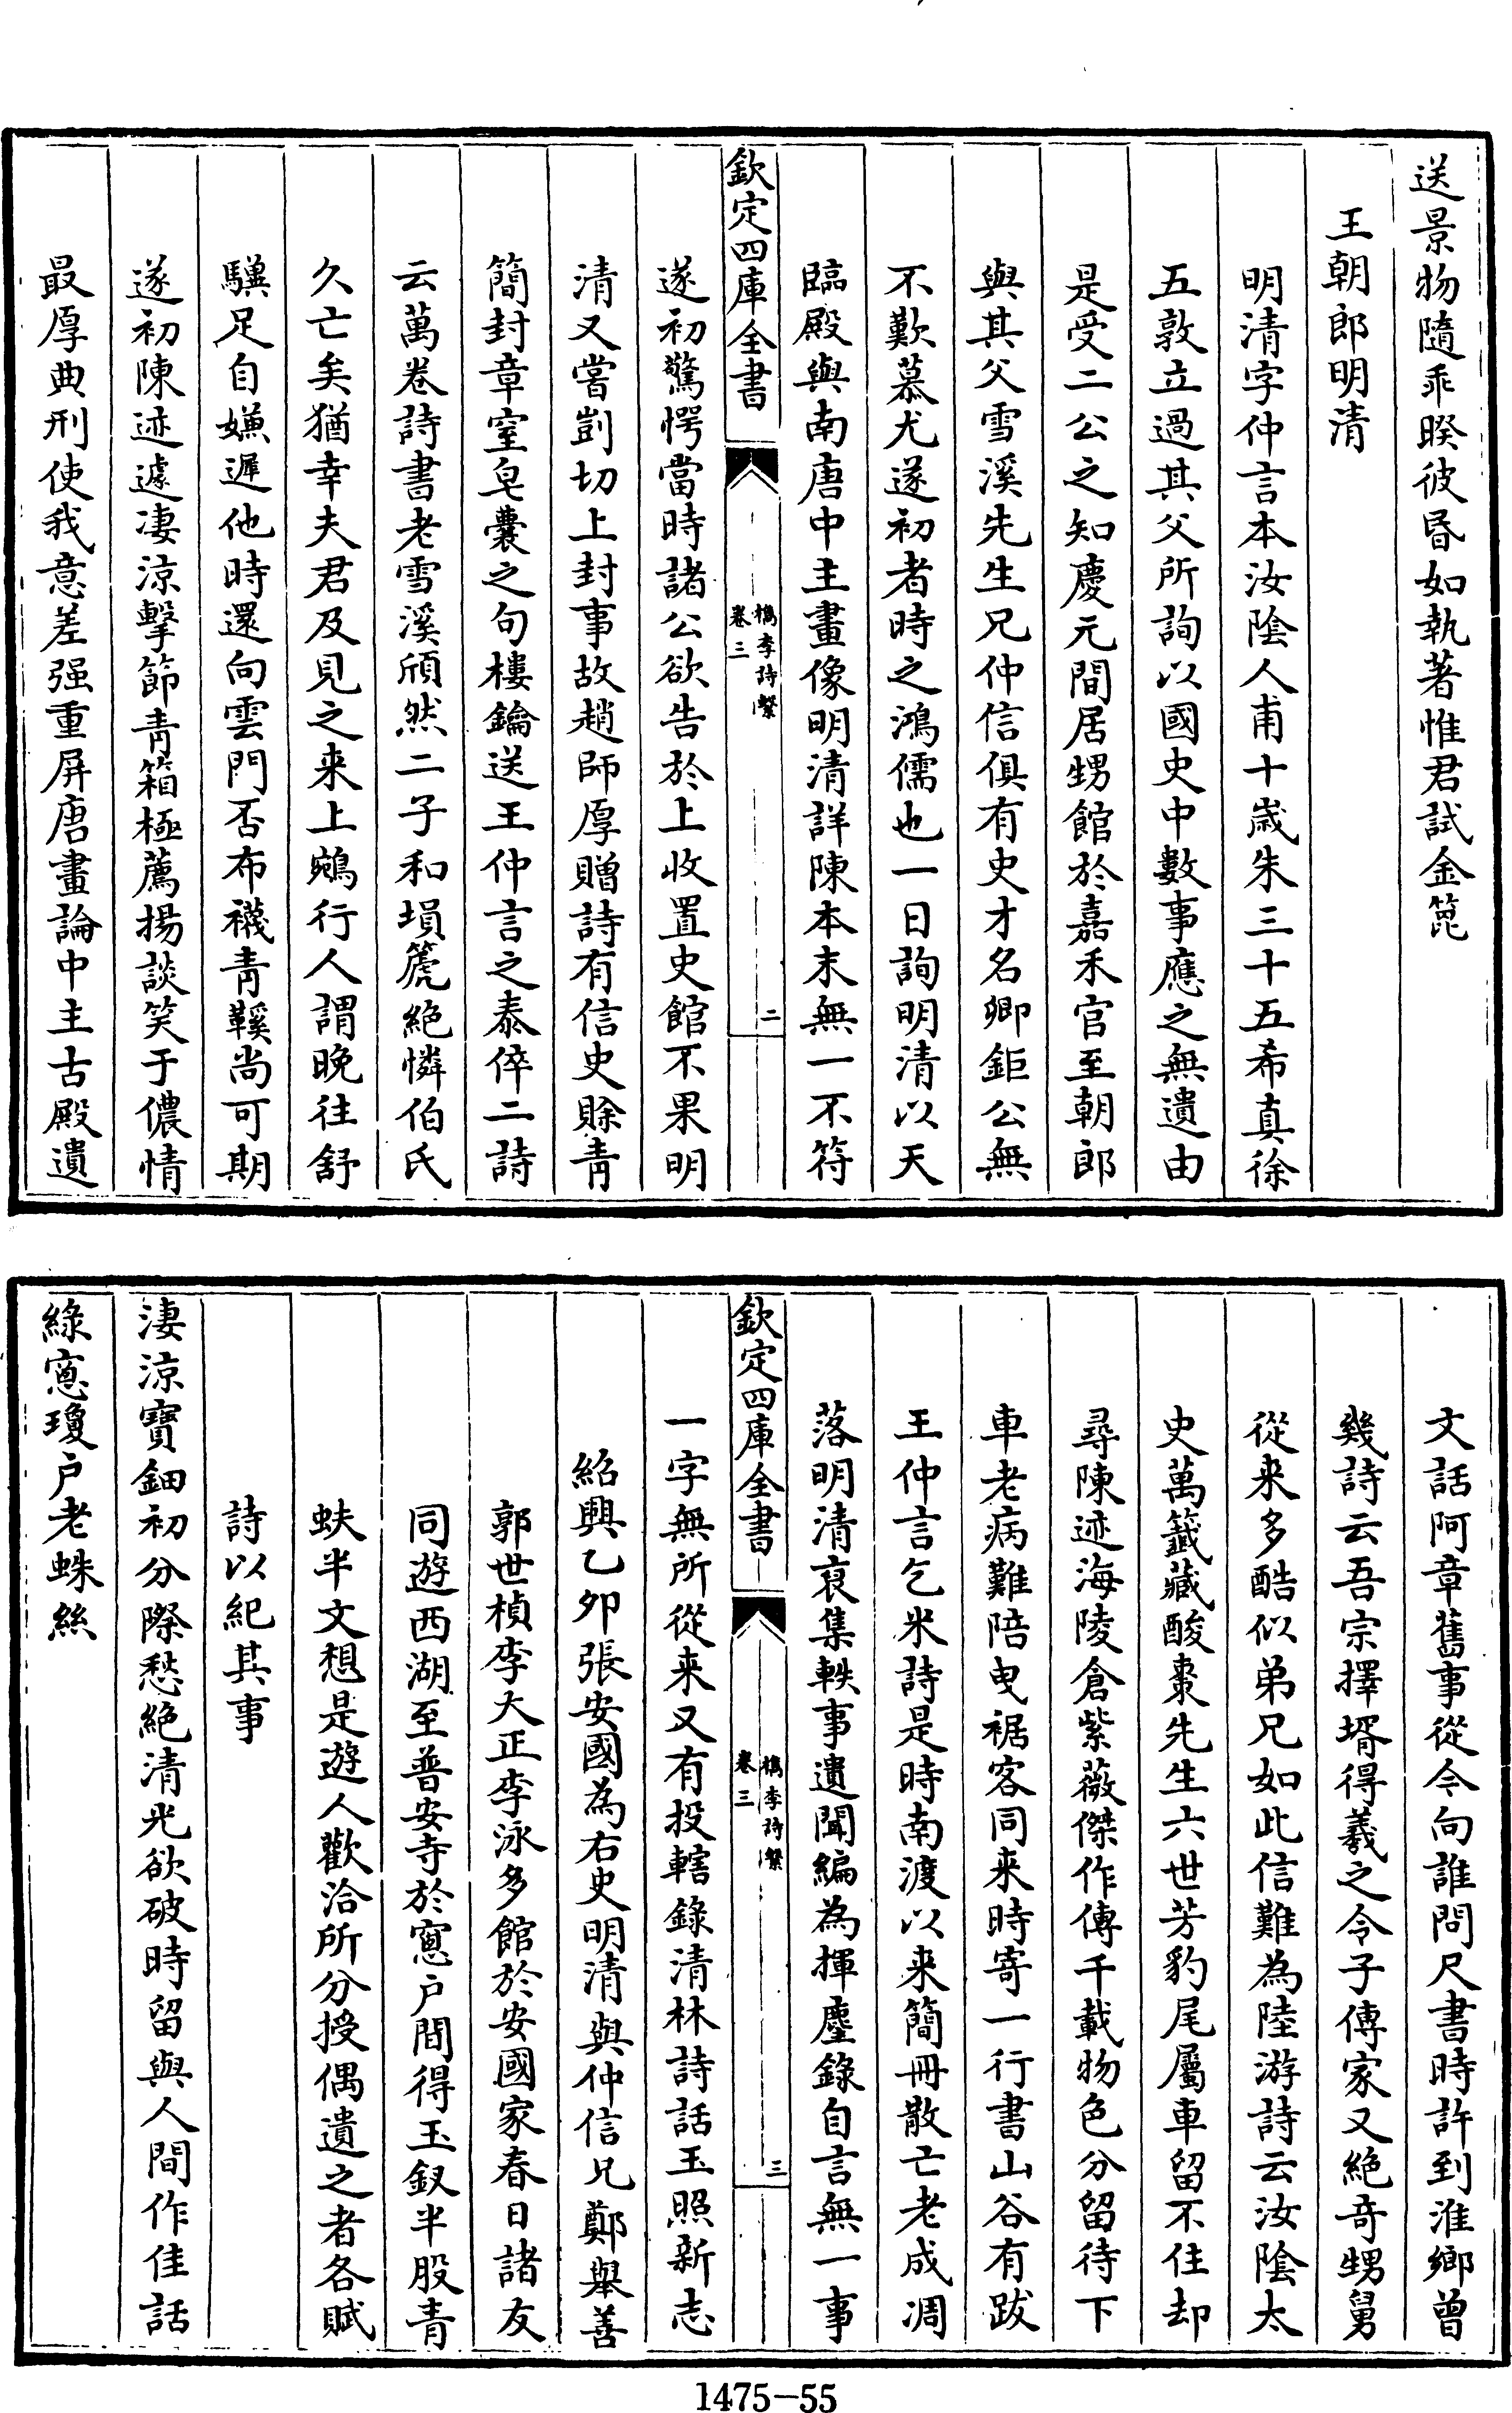 送景物隨乖睽彼昏如執著惟君試金篦
王朝郎明清
明清字仲言本汝隂人甫十歳朱三十五希真徐
五敦立過其父所詢以國史中數事應之無遺由
是受二公之知慶元間居甥館於嘉禾官至朝郎
與其父雪溪先生兄仲信俱有史才名卿鉅公無
不歎慕尤遂初者時之鴻儒也一日詢明清以天
臨殿與南唐中主畫像明清詳陳本末無一不符
欽定四庫全書
檇李詩繫
卷三
二
遂初驚愕當時諸公欲告於上收置史館不果明
清又嘗剴切上封事故趙師厚贈詩有信史賒青
簡封章窒皂囊之句樓鑰送王仲言之泰倅二詩
云萬卷詩書老雪溪頎然二子和塤篪絶憐伯氏
久亡矣猶幸夫君及見之来上鵷行人謂晚往舒
驥足自嫌遲他時還向雲門否布襪青鞵尚可期
遂初陳迹遽凄涼擊節青箱極薦揚談笑于儂情
最厚典刑使我意差强重屏唐畫論中主古殿遺
文話阿章舊事從今向誰問尺書時許到淮鄉曾
幾詩云吾宗擇壻得羲之令子傳家又絶奇甥舅
從来多酷似弟兄如此信難為陸游詩云汝隂太
史萬籖藏酸棗先生六世芳豹尾屬車留不住却
尋陳迹海陵倉紫薇傑作傳千載物色分留待下
車老病難陪曳裾客同来時寄一行書山谷有跋
王仲言乞米詩是時南渡以来簡冊散亡老成凋
落明清裒集軼事遺聞編為揮麈錄自言無一事
欽定四庫全書
檇李詩繫
卷三
三
一字無所從来又有投轄錄清林詩話玉照新志
紹興乙夘張安國為右史明清與仲信兄鄭舉善
郭世楨李大正李泳多館於安國家春日諸友
同遊西湖至普安寺於窻户間得玉釵半股青
蚨半文想是遊人歡洽所分授偶遺之者各賦
詩以紀其事
淒涼寶鈿初分際愁絶清光欲破時留與人間作佳話
綠窻瓊户老蛛絲
1475-55